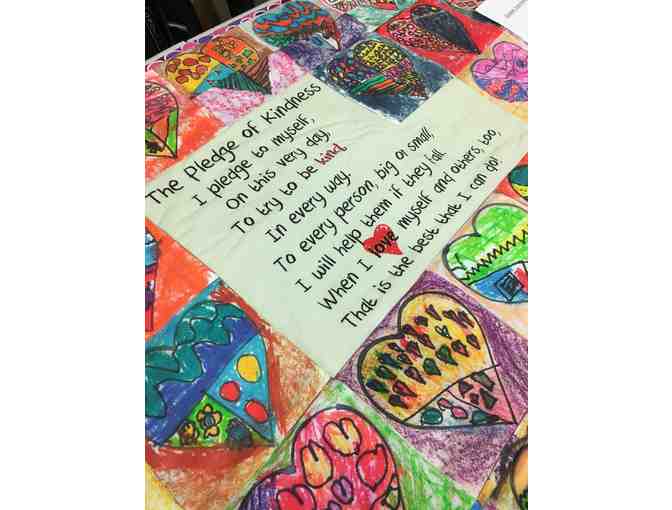 The Pledge of Kindness
I pledge to myself,
On this very day,
To try to be kind
In every way.
To every person, big or small,
I will help them if they fall
When I love myself and others, too,
That is the best that I can do!